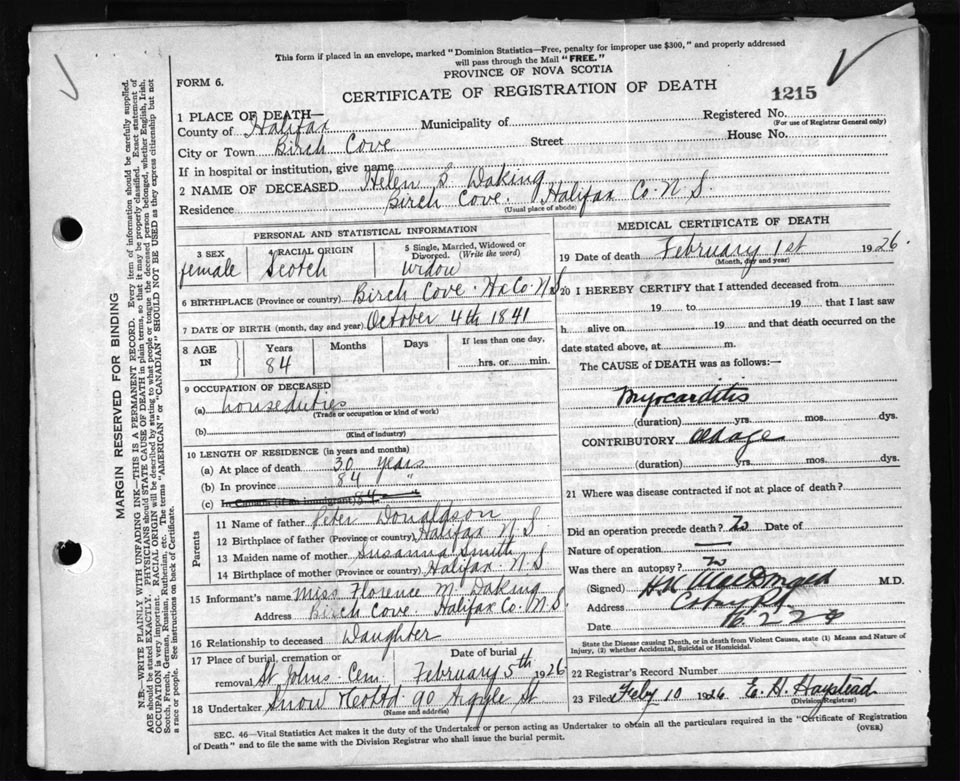 This form if placed in an envelope, marked "Dominion Statistics—Free, penalty for improper use $300," and properly addressed
will pass through the Mail "FREE."
PROVINCE OF NOVA SCOTIA
FORM 6.
CERTIFICATE OF REGISTRATION OF DEATH
1215
1 PLACE OF DEATH—
Registered No.
(For use of Registrar General only)
County of Halifax Municipality of
City or Town Birch Cove Street House No.
If in hospital or institution, give name
2 NAME OF DECEASED Helen S Daking
Residence Birch Cove. Halifax Co. N.S.
(Usual place of abode)
PERSONAL AND STATISTICAL INFORMATION
3 SEX 4 RACIAL ORIGIN 5 Single, Married, Widowed or Divorced. (Write the word)
female Scotch widow
6 BIRTHPLACE (Province or country) Birch Cove. Hx Co. N S
7 DATE OF BIRTH (month, day and year) October 4th 1841
8 AGE IN Years Months Days If less than one day,
84 hrs. or min.
9 OCCUPATION OF DECEASED
(a) house duties
(Trade or occupation or kind of work)
(b)
(Kind of industry)
10 LENGTH OF RESIDENCE (in years and months)
(a) At place of death 30 years
(b) In province 84 "
(c) In Canada (if an immigrant) 84
Parents
11 Name of father Peter Donaldson
12 Birthplace of father (Province or country) Halifax N.S.
13 Maiden name of mother Susanna Smith
14 Birthplace of mother (Province or country) Halifax. N.S
15 Informant's name Miss Florence M. Daking
Birch Cove. Halifax Co. N.S.
16 Relationship to deceased Daughter
17 Place of burial, cremation or removal St Johns Cem Date of burial February 5th 1926
18 Undertaker Snow & Co Ltd 90 Argyle St
(Name and address)
MEDICAL CERTIFICATE OF DEATH
19 Date of death February 1st 1926.
(Month, day and year)
20 I HEREBY CERTIFY that I attended deceased from
19 to 19 that I last saw
h alive on 19 and that death occurred on the
date stated above, at m.
The CAUSE of DEATH was as follows:—
Myocarditis
(duration) yrs. mos. dys.
CONTRIBUTORY Old age
(duration) yrs. mos. dys.
21 Where was disease contracted if not at place of death?
Did an operation precede death? No Date of
Nature of operation —
Was there an autopsy? No
(Signed) MacDonald M.D.
Address
Date
State the Disease causing Death, or in death from Violent Causes, state (1) Means and Nature of
Injury, (2) whether Accidental, Suicidal or Homicidal.
22 Registrar's Record Number
23 Filed Feby 10 1926 E. H. Haystead
(Division Registrar)
SEC. 46—Vital Statistics Act makes it the duty of the Undertaker or person acting as Undertaker to obtain all the particulars required in the "Certificate of Registration
of Death" and to file the same with the Division Registrar who shall issue the burial permit.
(OVER)
MARGIN RESERVED FOR BINDING
N.B.—WRITE PLAINLY WITH UNFADING INK—THIS IS A PERMANENT RECORD. Every item of information should be carefully supplied.
AGE should be stated EXACTLY. PHYSICIANS should STATE CAUSE OF DEATH in plain terms, so that it may be properly classified. Exact statement of
OCCUPATION is very important. RACIAL ORIGIN will be described by stating to what people or tongue the deceased person belonged, whether English, Irish,
Scotch, French, German, Russian, Ruthenian, etc. The terms "AMERICAN" or "CANADIAN" SHOULD NOT BE USED as they express citizenship but not
a race or people. See instructions on back of Certificate.